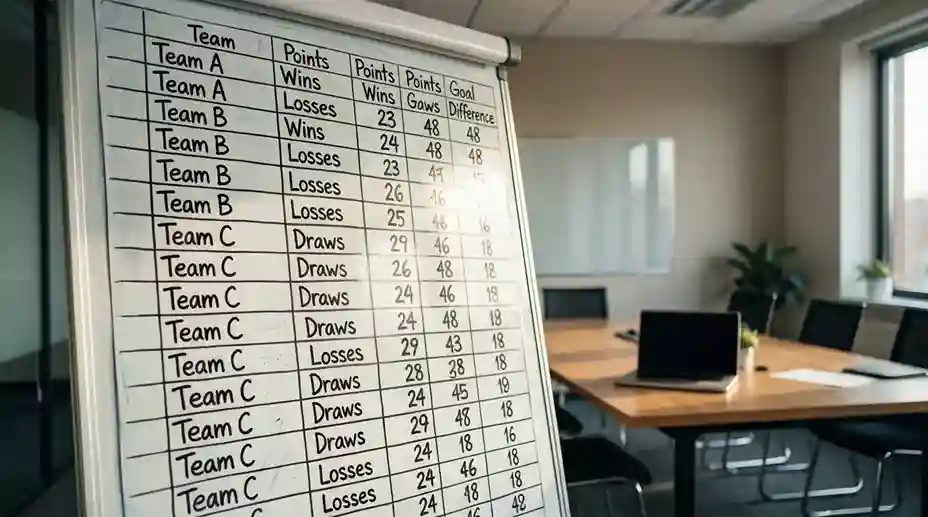 Team Points Points Points Goal
Team A Wins Wins Gaws Difference
Team A Losses 23 48 48
Team B Wins 24 48 48
Team B Losses 23
Team B Losses 26
Team B Losses 25 46 16
Team C Draws 29 46 18
Team C Draws 26 48 18
Team C Draws 24 46 18
Team C Draws 24 48 18
Team C Losses 29 43 18
Team C Draws 28 38 18
Team C Draws 24 45
Team C Draws 29 48 18
Team C Losses 24 18 16
Team C Losses 24 46 18
24 48